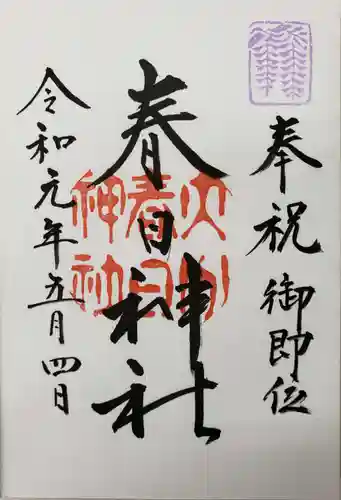 奉祝 御即位
春日神社
令和元年五月四日